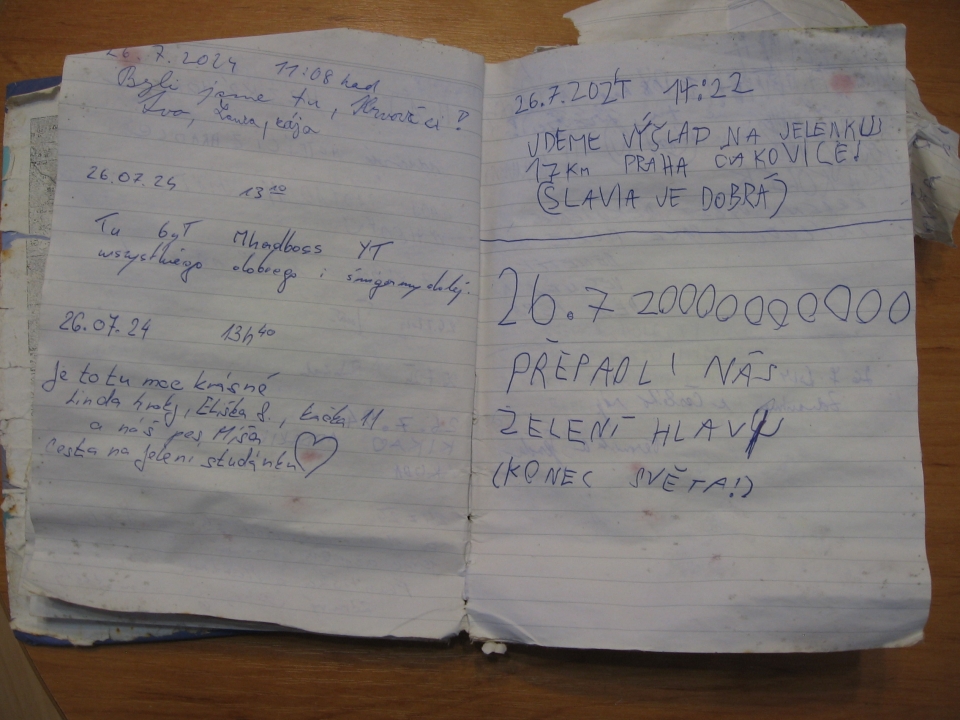 26.7.2024 11:08 had
Byli jsme tu, !
Iva, Lenka, Kája
26.07.24 13 10
Tu byT Mhadboss YT
wszystkiego dobrego i śmigamy dalej.
26.07.24 13h40
je to tu moc krásné
Linda, Eliška 8., 11
a náš pes Míša
cesta na jelení studánku
26.7.2024 14:22
JDEME VÝŠLAP NA JELENKU
17KM PRAHA ČAKOVICE!
(SLAVIA JE DOBRÁ)
26.7 20000000000
PŘEPADLI NÁS
ZELENÍ HLAVY
(KONEC SVĚTA!)